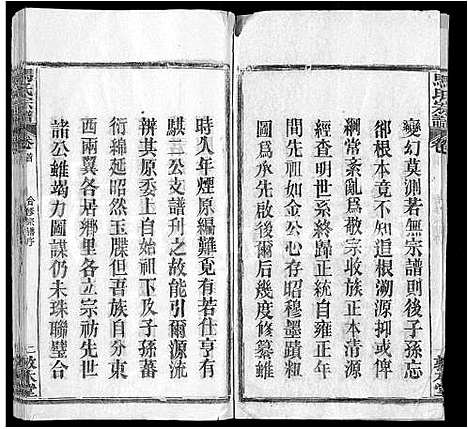 馬氏宗譜 卷
變幻莫測若無宗譜則後子孫忘
卻根本立法不追根溯源抑或俾
綱常紊亂爲敬宗收族正本清源
經查明世系終歸正統自雍正年
間先祖如金公心存昭穆墨蹟粒
圖爲承先啟後爾後幾度修纂雖
敦本堂
時久年煙原編難覓有若仕亨有
騏三公支譜刊之故能引爾源流
辨其原委上自始祖下及子孫蕃
衍綿延昭然玉牒但吾族自分東
西兩翼各居鄉里各立宗祠先世
諸公雖竭力圖謀仍未珠聯璧合
馬氏宗譜 卷首
合修宗譜序
二 敦本堂